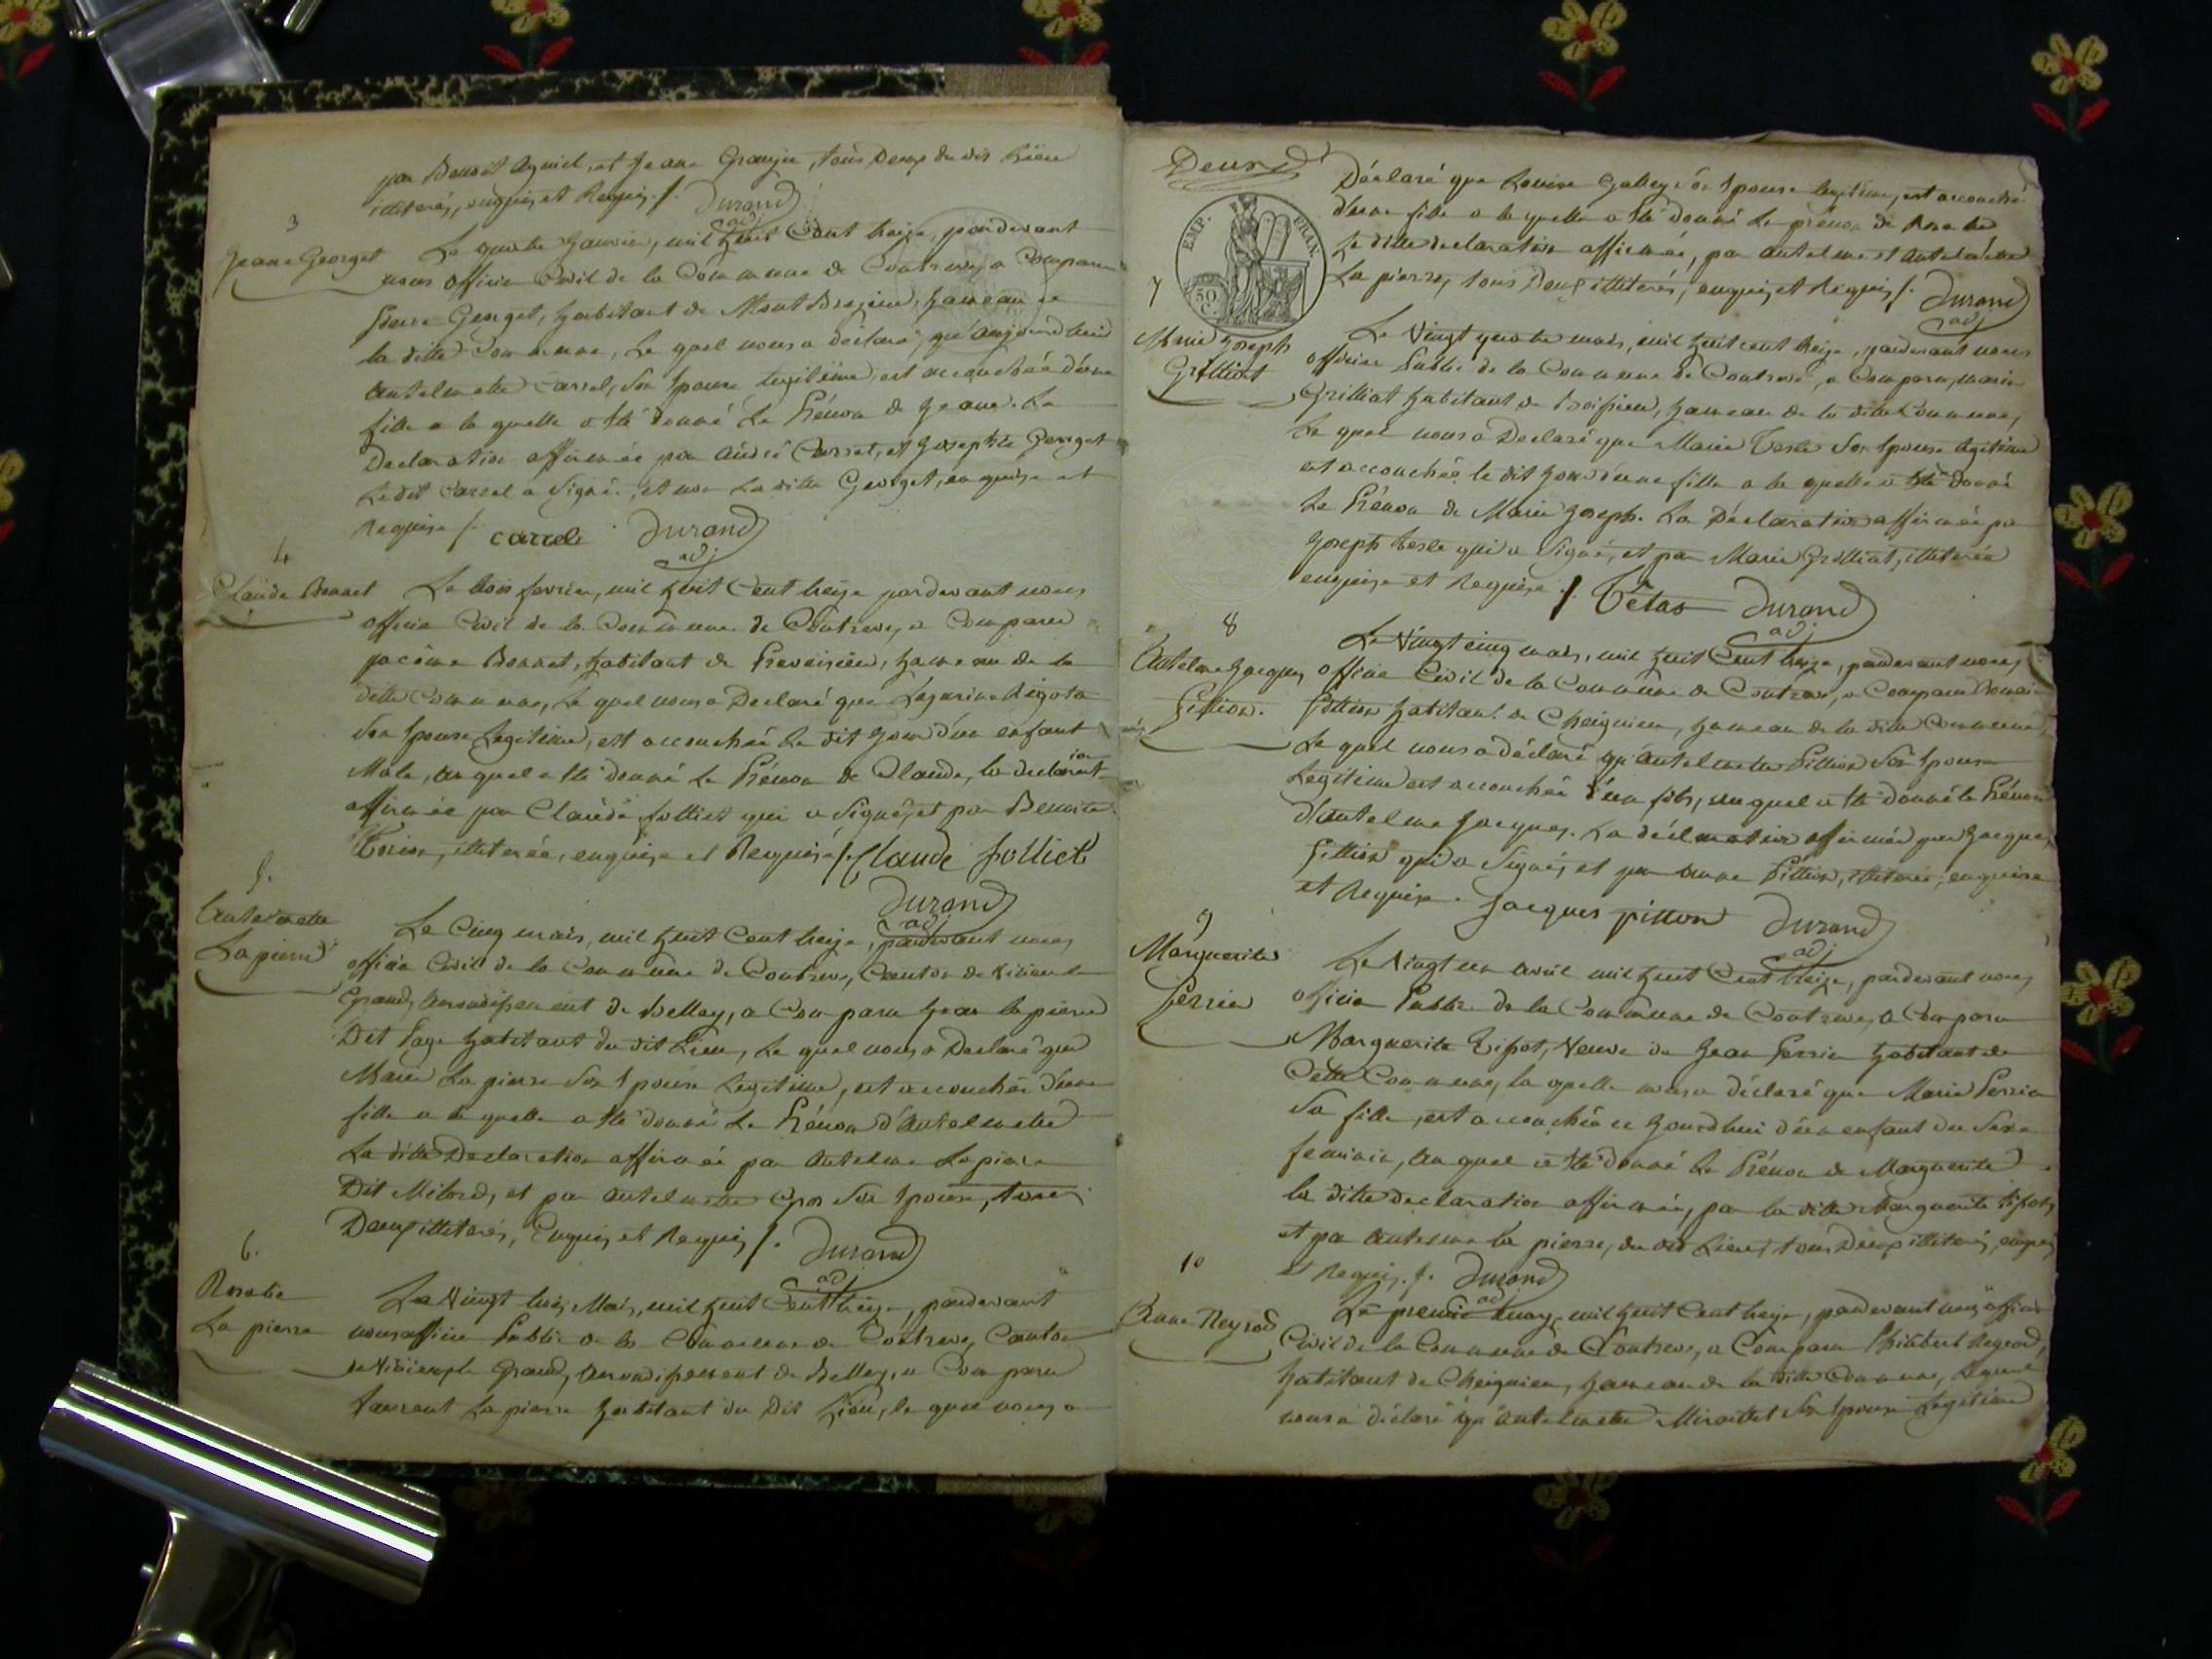 par Benoit Agniel, et Jeane Granjin, tous Deux du dit Lieu
illiterés, enquis et Requis /. Durand
adj
3
Jeane Georget
Le quatre Janvier, mil huit Cent treize, pardevant
nous officier Civil de la Commune de Contrevoz a Comparu
Georget, habitant de Montbrezieu, hameau de
la ditte Commune, Le quel nous a déclaré, qu'aujourdhuid
Antelmette Carrel, Son Epouse legitime, est accouchée d'une
fille a la quelle a été donné Le Prénom de Jeane. La
Declaration affirmée par André Carrel, et Josephte Georget
Ledit Carrel a Signé, et non La ditte Georget, enquise et
Requise /. carrele Durand
adj
4
Claude Bonnet
Le trois fevrier, mil huit Cent treize pardevant nous
officier Civil de la Commune de Contrevoz, a Comparu
Bonnet, habitant de hameau de la
ditte Commune, Le quel nous a Declaré que Rigolo
Son Epouse Legitime, est accouchée Le dit Jour d'un enfant
Mâle, au quel a été donné Le Prénom de Claude, la declaration
affirmée par Claude folliet qui a Signé, et par Benoite
illiterée, enquise et Requise /. Claude folliet
Durand
adj
5.
Antelmette
Lapierre
Le Cinq mars, mil huit Cent treize, pardevant nous
officier Civil de la Commune de Contrevoz, Canton de Virieu le
Grand, Arrondissement de Belley, a Comparu Jean lapierre
Dit Page habitant du dit Lieu, Le quel nous a Declaré que
Marie Lapierre Son Epouse Legitime, est accouchée d'une
fille a la quelle a été donné Le Prénom d'Antelmette
La ditte Declaration affirmée par Antelme Lapierre
Dit Milord, et par Antelmette Son Epouse, tous
Deux illiterés, Enquis et Requis /. Durand
adj
6.
Rosalie
La pierre
Le Vingt trois Mars, mil huit Cent treize, pardevant
nous officier Public de la Commune de Contrevoz, Canton
de Virieu le Grand, Arrondissement de Belley, a Comparu
Laurent La pierre habitant du Dit Lieu, le quel nous a
Deux
EMP. FRAN.
50 C.
Déclaré que Louise Galley Son Epouse legitime, est accouchée
d'une fille a la quelle a été donné Le prénom de Rosalie
La ditte declaration affirmée, par Antelme et Antelmette
La pierre, tous Deux illiterés, enquis et Requis /. Durand
adj
7
Marie Joseph
Grilliat
Le Vingt quatre mars, mil huit cent treize, pardevant nous
officier Public de la Commune de Contrevoz, a Comparu, marin
Grilliat habitant de hameau de la ditte Commune,
Le quel nous a Declaré que Marie Teste Son Epouse legitime
est accouchée le dit Jour d'une fille a la quelle a été donné
Le Prénom de Marie Joseph. La Déclaration affirmée par
Joseph teste qui a Signé, et par Marie Grilliat, illiterée
enquise et Requise /. Durand
adj
8
Antelme Jacques
Pillion.
Le Vingt cinq mars, mil huit Cent treize, pardevant nous
officier Civil de la Commune de Contrevoz, a Comparu
Pillion habitant de Cheignieu, hameau de la ditte Commune,
Le quel nous a déclaré qu'Antelmette Pillion Son Epouse
Legitime est accouchée d'un fils, au quel a été donné le Prénom
d'Antelme Jacques. La déclaration affirmée par Jacques
Pillion qui a Signé, et par Anne Pillion, illiterée, enquise
et Requise. Jacques pillon Durand
adj
9
Marguerite
Perrin
Le Vingt un Avril mil huit Cent treize, pardevant nous
officier Public de la Commune de Contrevoz, a Comparu
Marguerite Tipot, Veuve de Jean Perrin habitant de
Cette Commune, la quelle nous a déclaré que Marie Perrin
Sa fille, est accouchée ce Jourdhui d'un enfant du Sexe
feminin, au quel a été donné Le Prénom de Marguerite.
la ditte declaration affirmée, par la ditte Marguerite Tipot,
et par Antelme la pierre, du dit Lieu, tous Deux illiterés, enquis
et Requis. /. Durand
adj
10
Anne Reyrod
Le premier may, mil huit Cent treize, pardevant nous officier
Civil de la Commune de Contrevoz, a Comparu Philibert Reyrod,
habitant de Cheignieu, hameau de la ditte Commune, Lequel
nous a déclaré qu'antelmette Miraillet Son Epouse Legitime